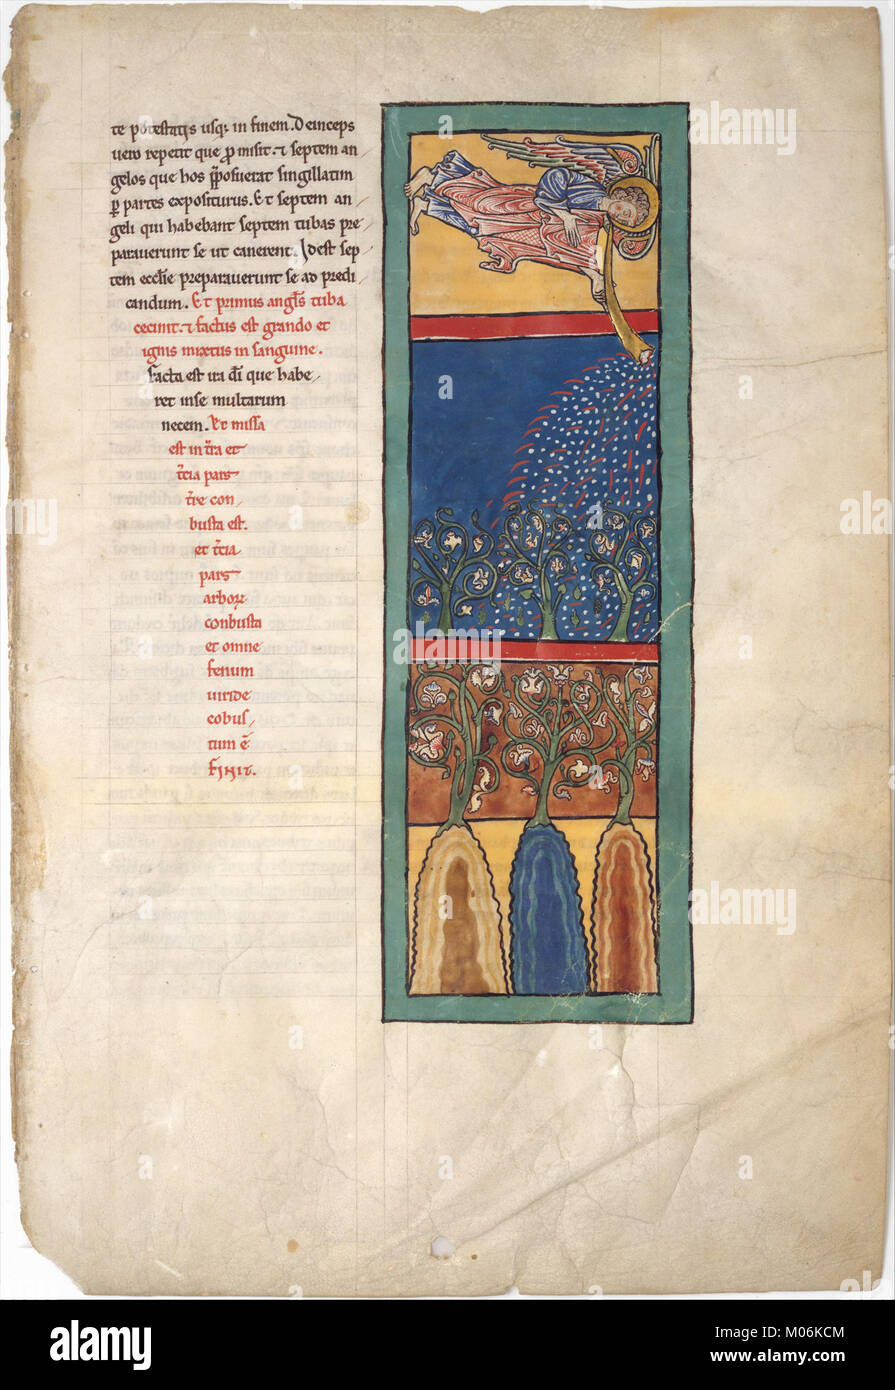 te potestatis usq; in finem. Deinceps
uero repetit que p̄misit. & septem an
gelos que hos p̄posuerat singillatim
p̱ partes expositurus. Et septem an
geli qui habebant septem tubas pre
parauerunt se ut canerent. Idest sep
tem ecclīe preparauerunt se ad predi
candum. Et primus angl̄s tuba
cecinit. & factus est grando et
ignis mixtus in sanguine.
Facta est ira dī que habe
ret in se multarum
necem. Et missa
est in tr̄a et
tc̄ia pars
tr̄e con
busta est.
et tc̄ia
pars
arborꝝ
conbusta
et omne
fenum
uiride
cobus
tum ē
FINIT.
alamy
a
Image ID: M06KCM
www.alamy.com